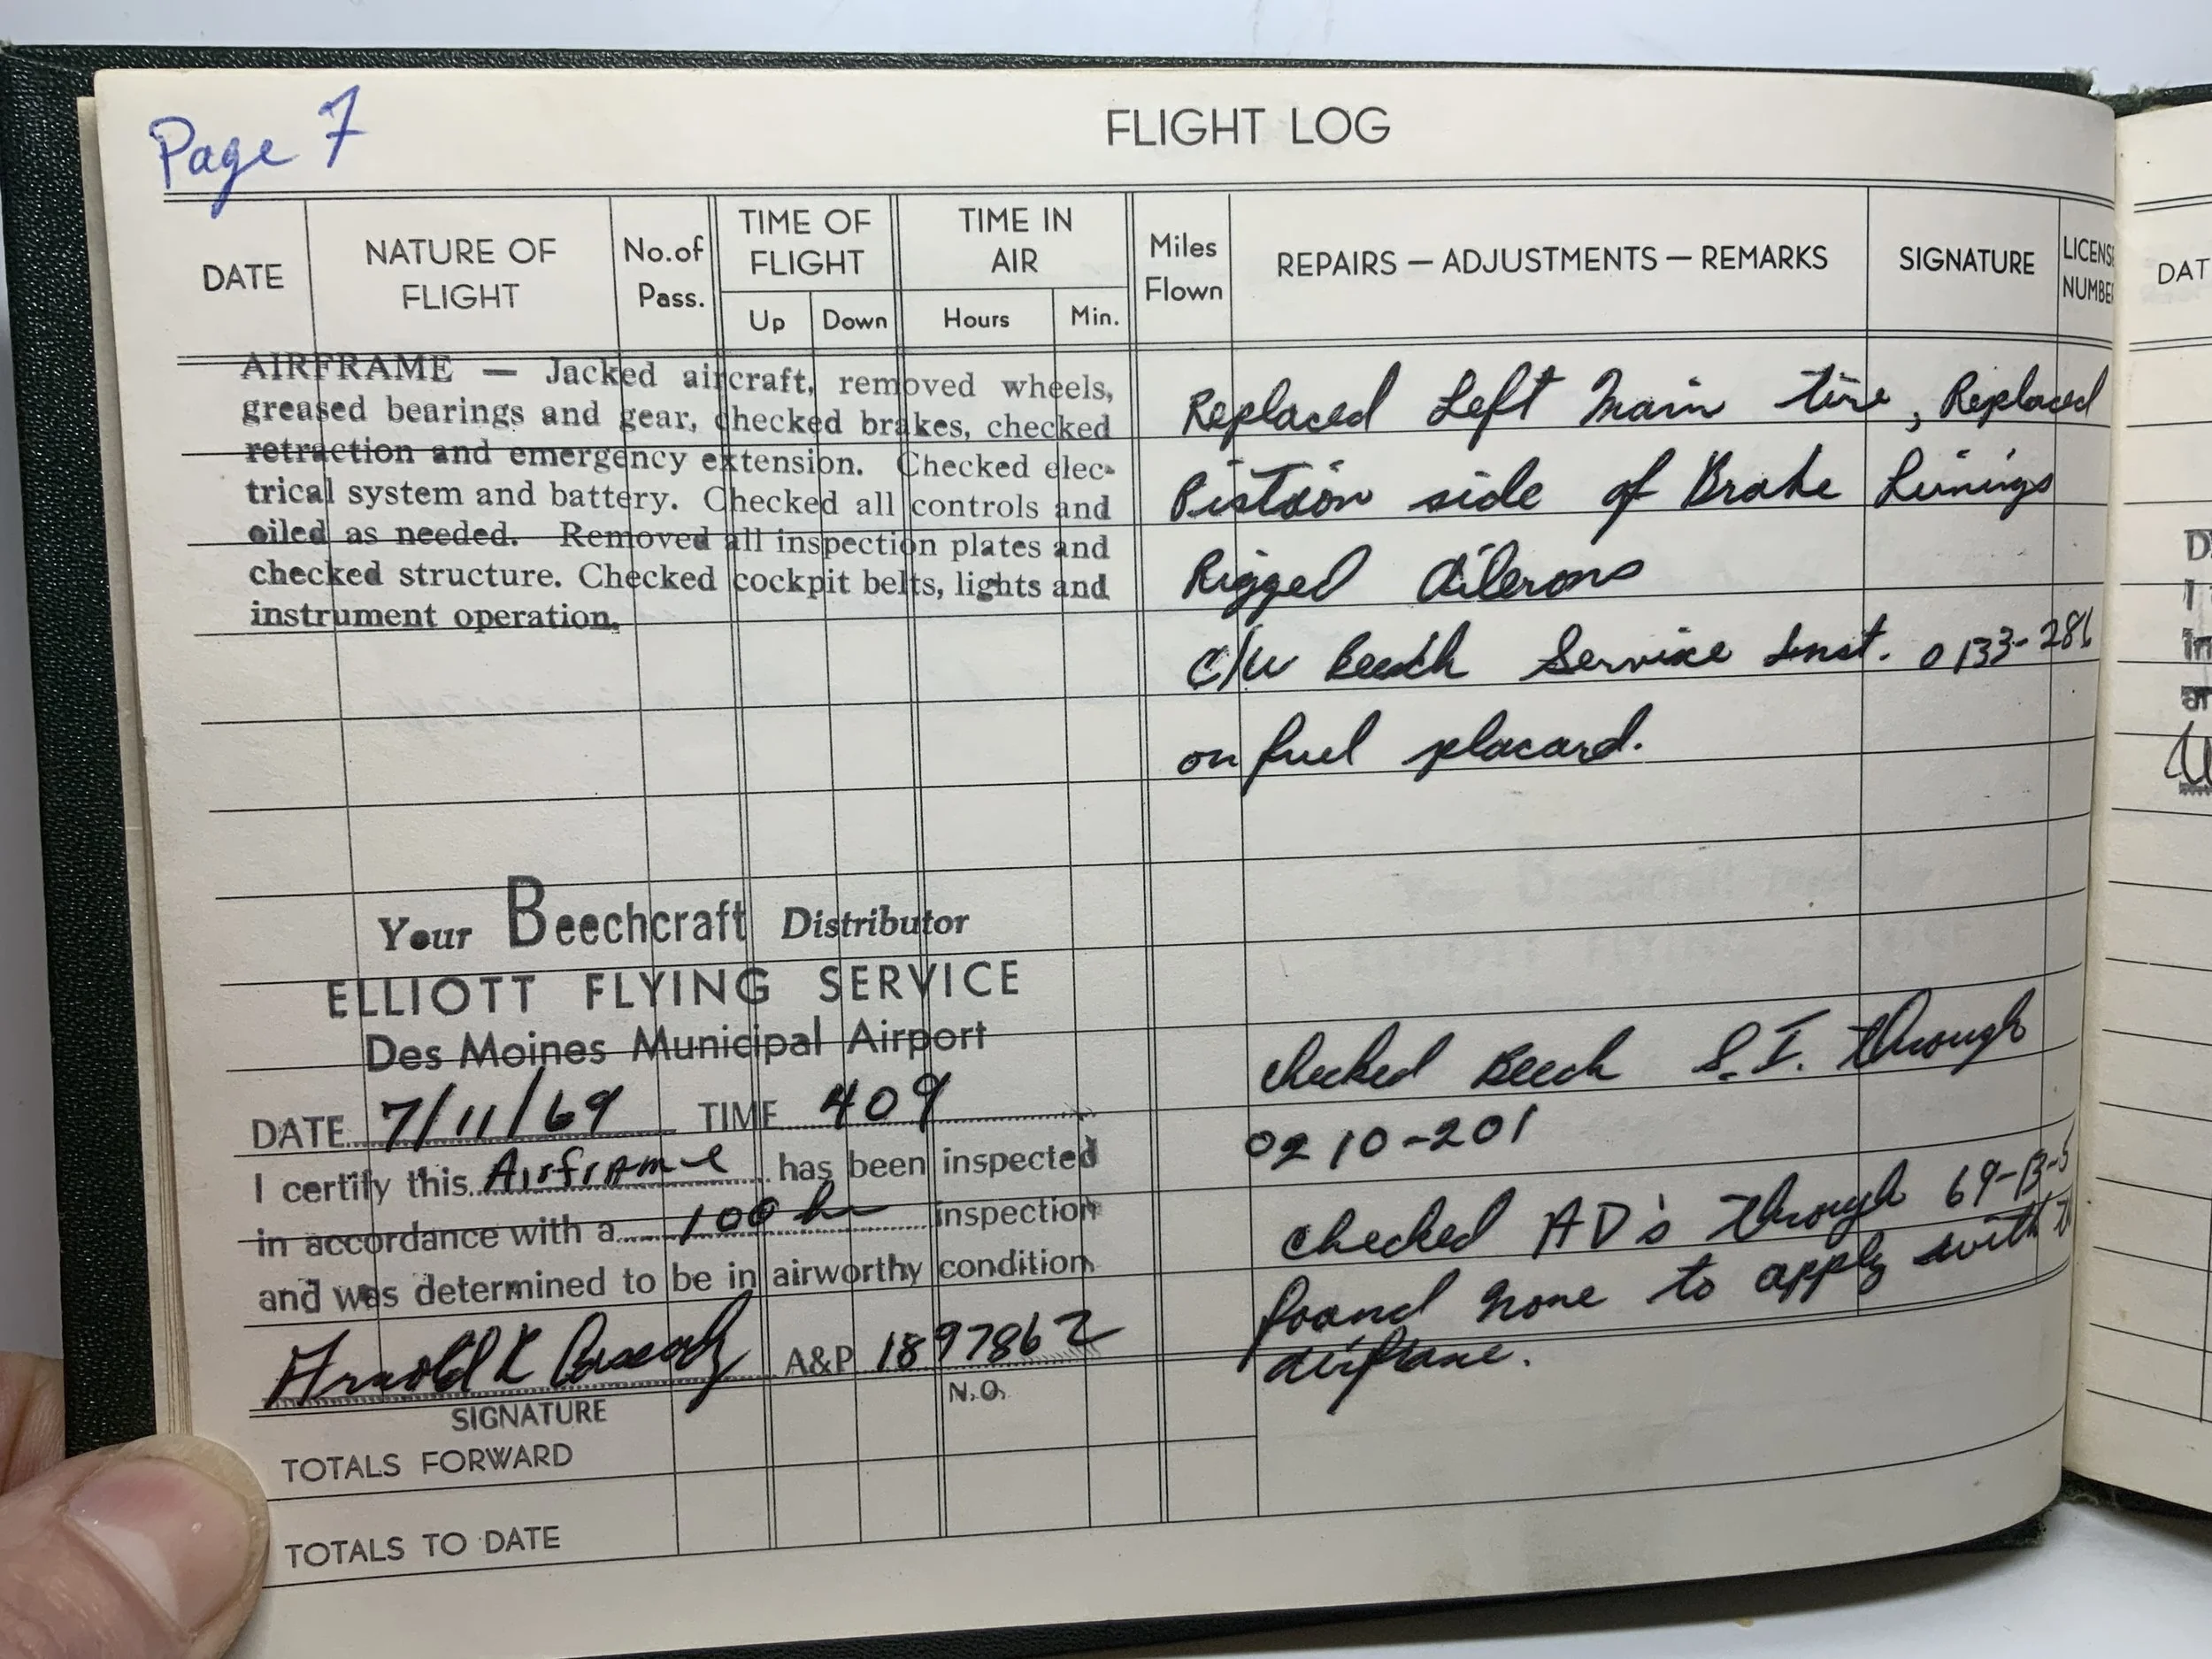 Page 7
FLIGHT LOG
DATE
NATURE OF FLIGHT
No. of Pass.
TIME OF FLIGHT
Up
Down
TIME IN AIR
Hours
Min.
Miles Flown
REPAIRS — ADJUSTMENTS — REMARKS
SIGNATURE
LICENSE NUMBE
AIRFRAME — Jacked aircraft, removed wheels,
greased bearings and gear, checked brakes, checked
retraction and emergency extension. Checked elec-
trical system and battery. Checked all controls and
oiled as needed. Removed all inspection plates and
checked structure. Checked cockpit belts, lights and
instrument operation.
Your Beechcraft Distributor
ELLIOTT FLYING SERVICE
Des Moines Municipal Airport
DATE 7/11/69 TIME 409
I certify this Airframe has been inspected
in accordance with a 100 hr inspection
and was determined to be in airworthy condition
Arnold K A&P 1897862
SIGNATURE N.O.
TOTALS FORWARD
TOTALS TO DATE
Replaced Left Main tire, Replaced
Pistion side of Brake Linings
Rigged Ailerons
C/W Beech Service Inst. 0133-286
on fuel placard.
checked Beech S.I. through
0210-201
checked AD's through 69-13-5
found none to apply with
airplane.
DAT